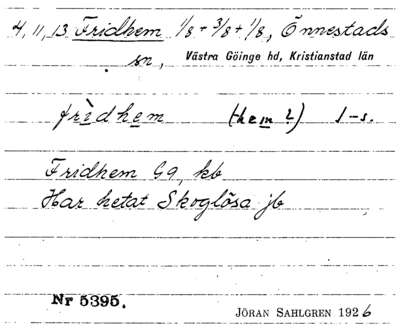 4, 11, 13. Fridhem 1/8 + 3/8 + 1/8, Önnestads
sn, Västra Göinge hd, Kristianstad län
frìdhem (hem 2) 1-s.
Fridhem G9, kb
Har hetat Skoglösa jb
Nr 5395.
JÖRAN SAHLGREN 1926